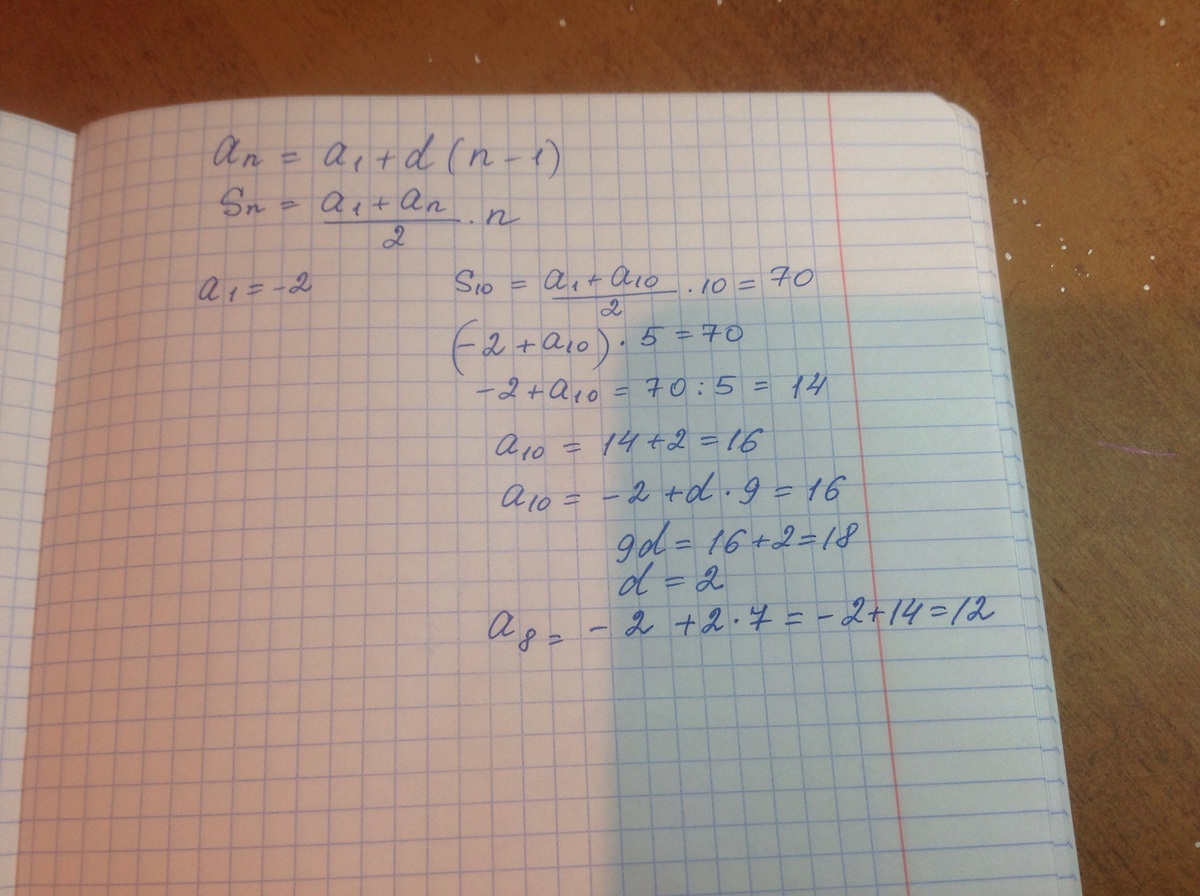 aₙ = a₁ + d (n - 1)
Sₙ = (a₁ + aₙ)/2 · n
a₁ = -2
S₁₀ = (a₁ + a₁₀)/2 · 10 = 70
(-2 + a₁₀) · 5 = 70
-2 + a₁₀ = 70 : 5 = 14
a₁₀ = 14 + 2 = 16
a₁₀ = -2 + d · 9 = 16
9d = 16 + 2 = 18
d = 2
a₈ = -2 + 2 · 7 = -2 + 14 = 12